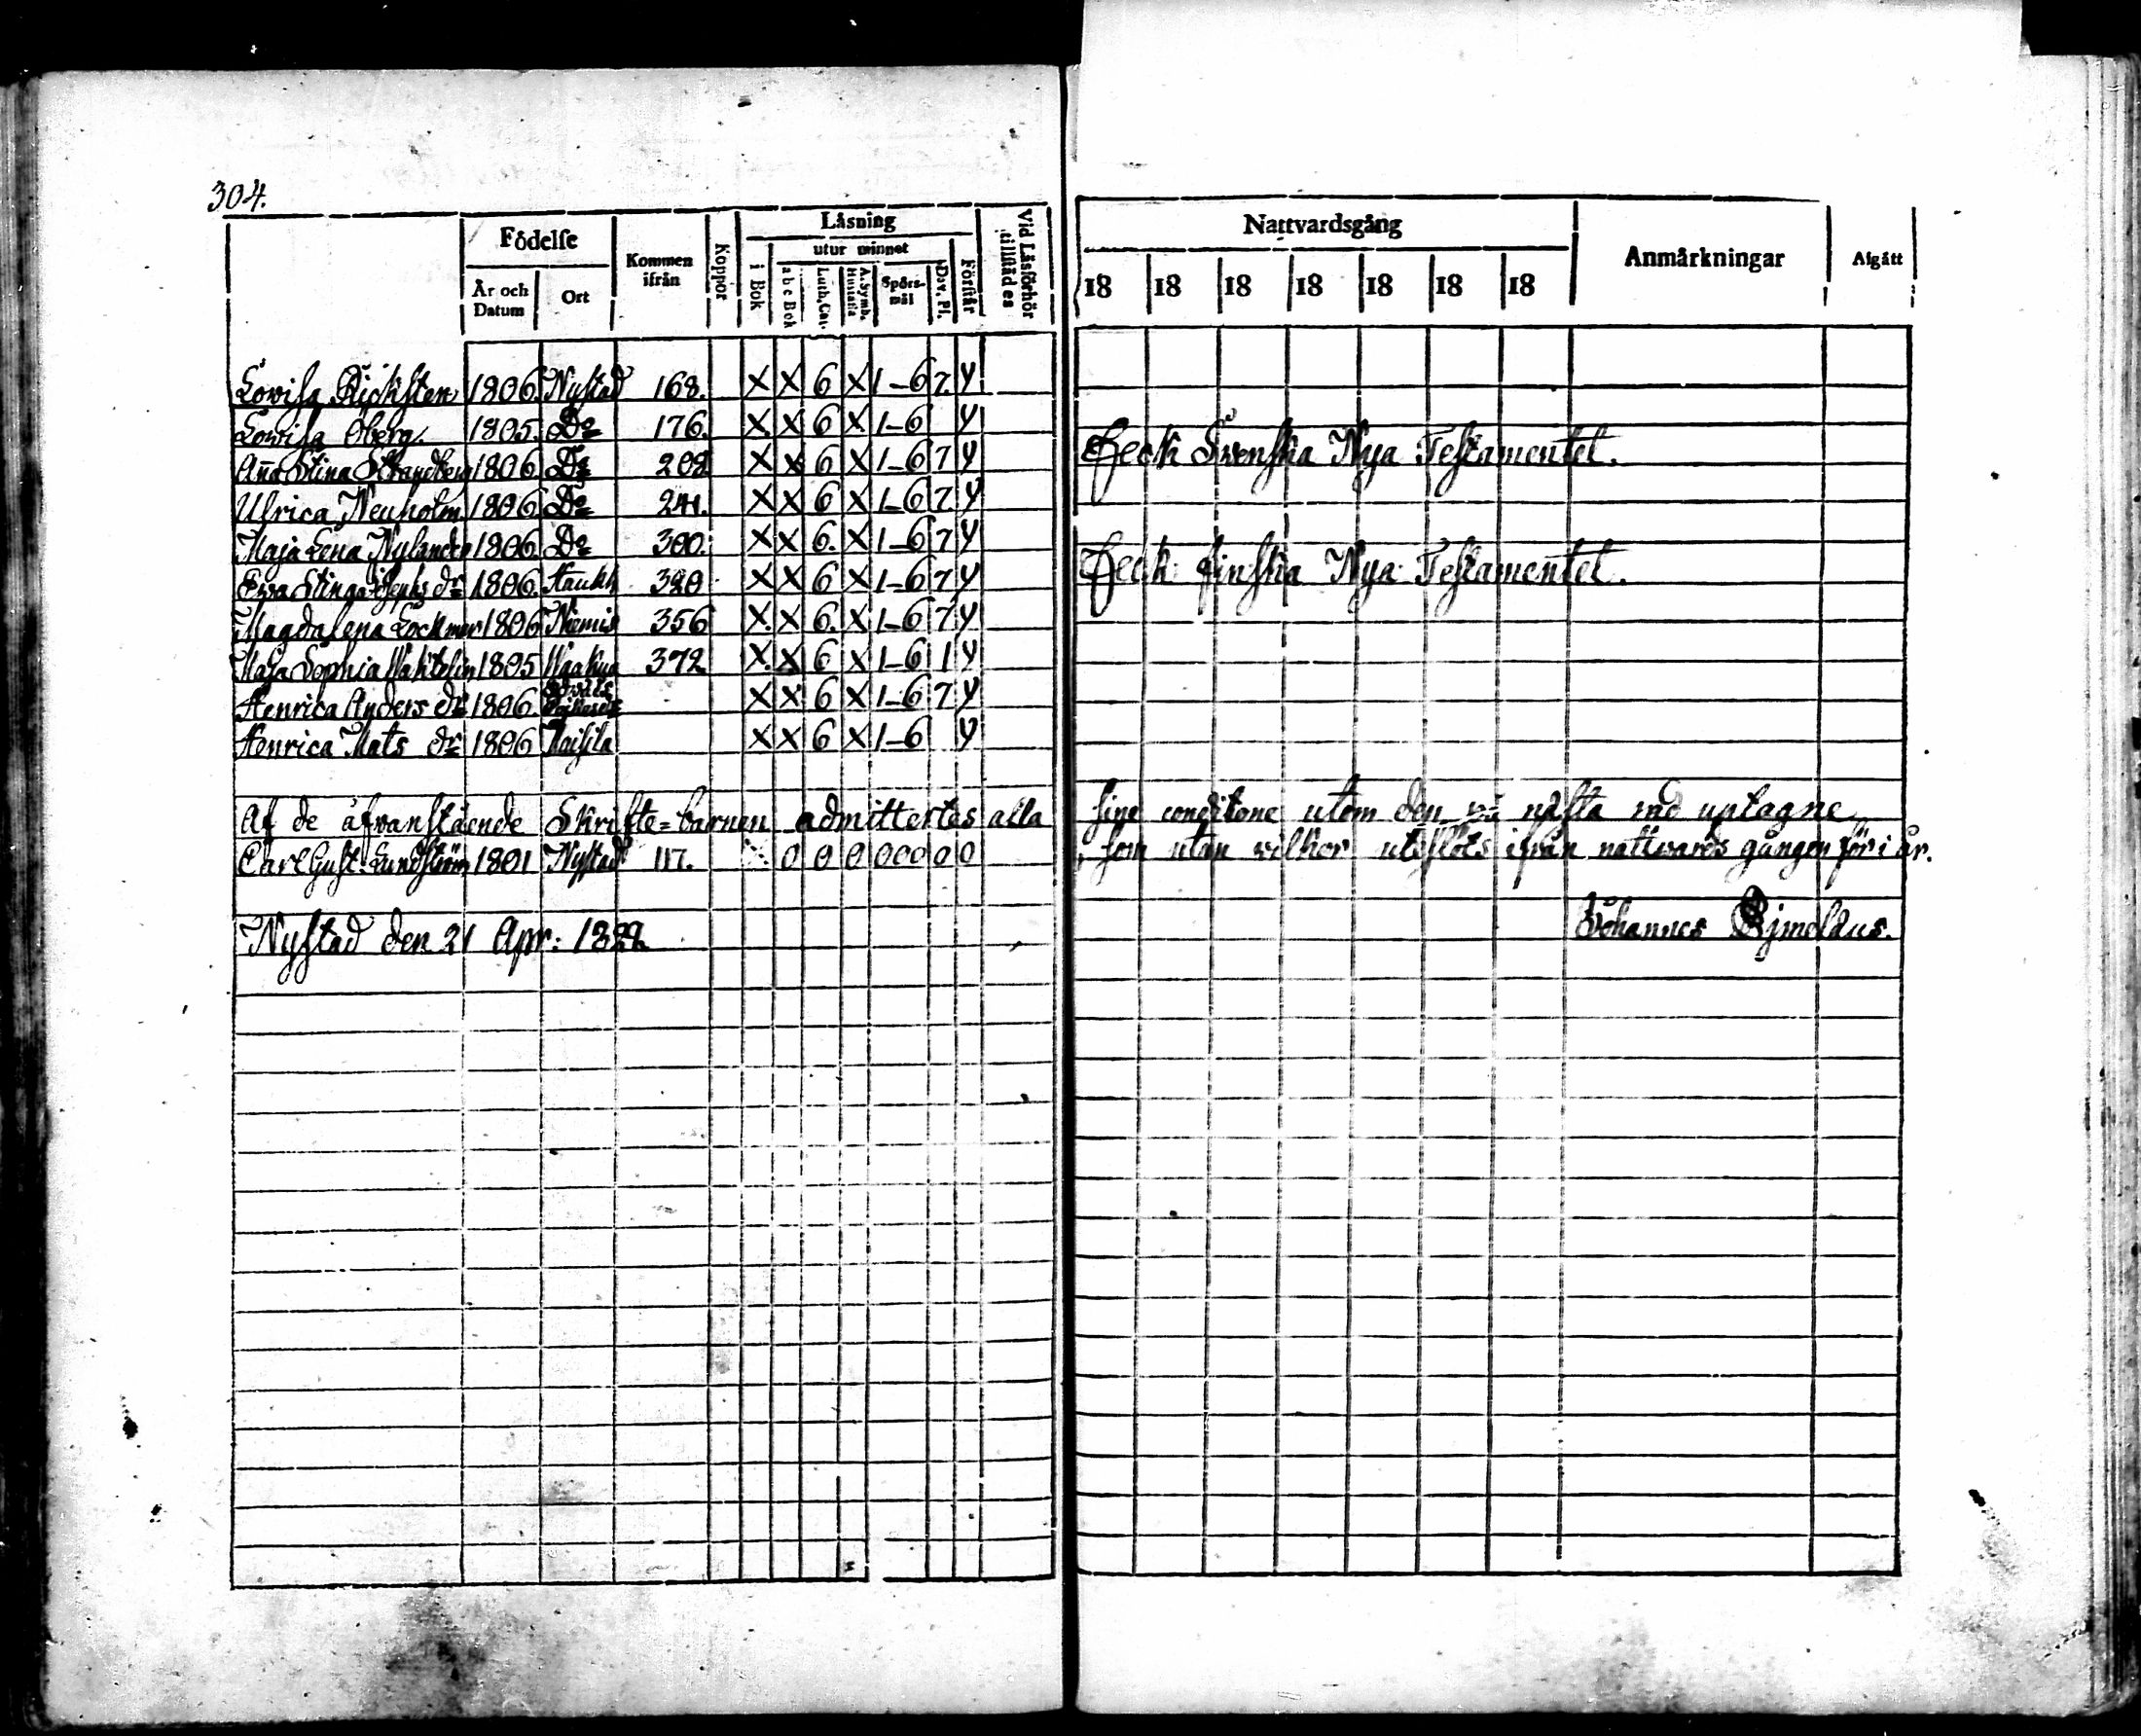 304.
Födelse Kommen ifrån Koppor Läsning Vid Läsförhör tillstädes Nattvardsgång Anmärkningar Afgått
År och Datum Ort i Bok utur minnet Förstår
a b c Bok Luth. Cat. A. Symb. Spörsmål Dav. Pl.
18 18 18 18 18 18 18
Lovisa 1806. Nystad 168. X X 6 X 1-6 7. y
Lovisa Öberg. 1805. Do 176. X X 6 X 1-6 y
Aña Stina Strandberg 1806 Do 208 X X 6 X 1-6 7 y Feck Svenska Nya Testamentet.
Ulrica Neuholm 1806 Do 241. X X 6 X 1-6 7. y
Maja Lena Nylander 1806. Do 300. X X 6. X 1-6 7 y
Ewa Stina dr 1806. 320 X X 6 X 1-6 7 y Feck finska Nya Testamentet.
Magdalena 1806 Niemis 356 X. X 6. X 1-6 7 y
Maja Sophia 1805 372 X. X 6 X 1-6 1 y
Henrica Anders dr 1806. X X 6 X 1-6 7 y
Henrica Mats dr 1806 X X 6 X 1-6 y
Af de åfvanstående Skrifte=barnen admitterades alla sine conditione utom den nästa rad uptagne
Carl Gust. Lundström 1801 Nystad 117. X 0 0 0 000 0 0 , som utan wilkor uteslöts ifrån nattvards gången för i år.
Nystad den 21 Apr: 1822 Johannes